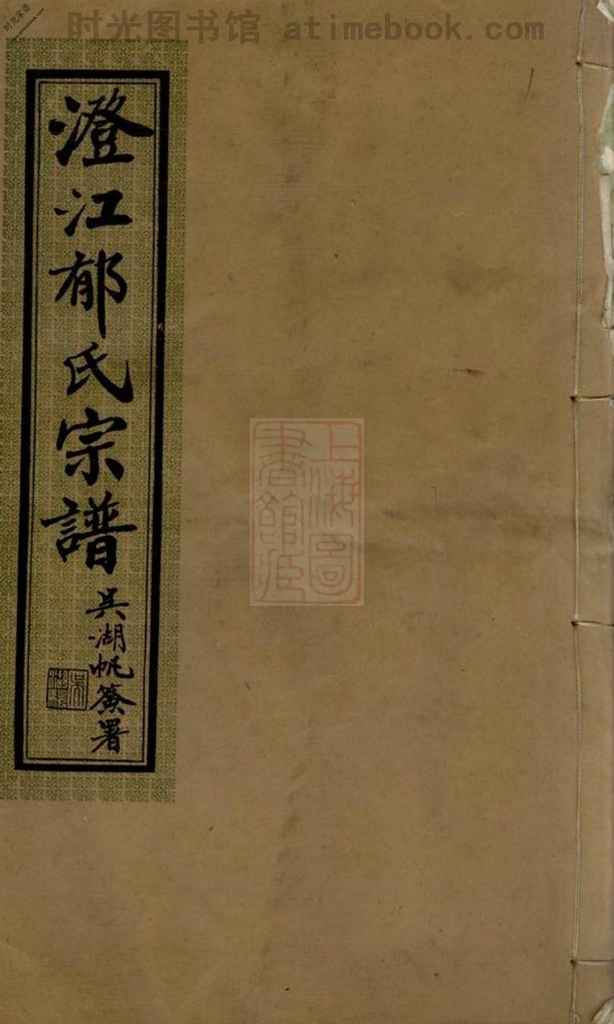 时光图书馆 atimebook.com
澄江郁氏宗譜
吳湖帆簽署
上海圖
書館藏